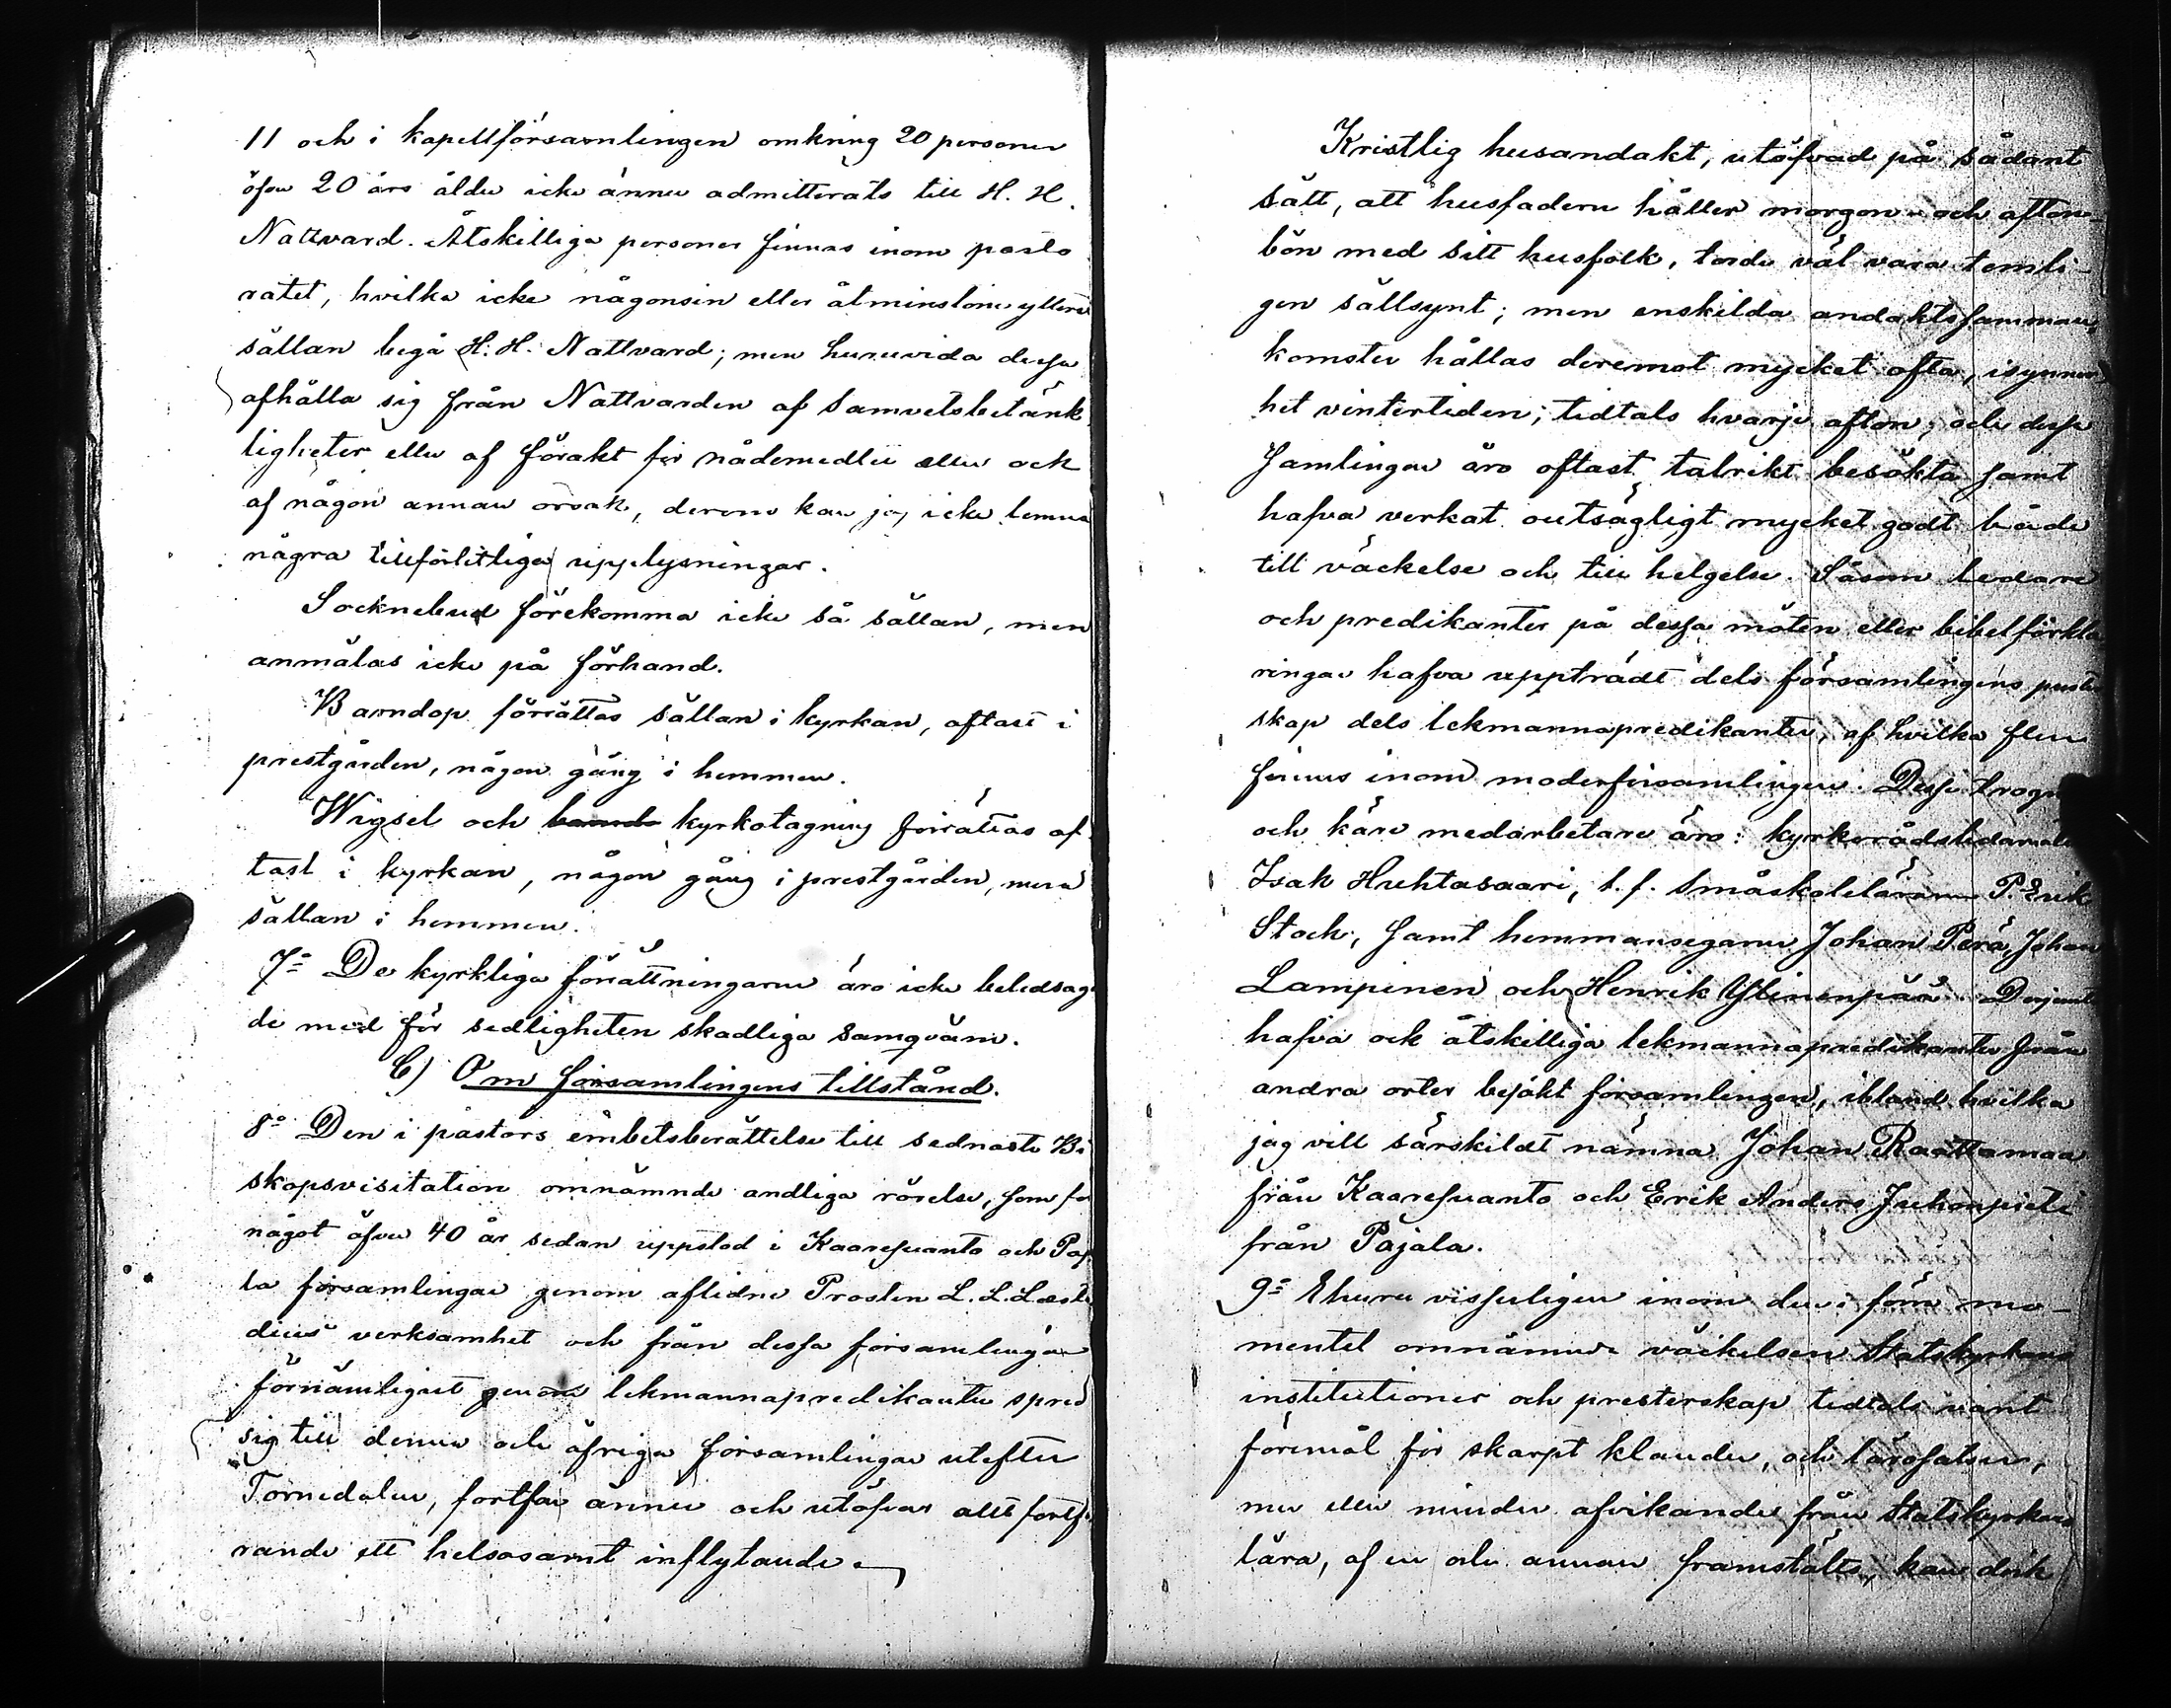 11 och i kapellförsamlingen omkring 20 personer
öfver 20 års ålder icke ännu admitterats till H. H.
Nattvard. Åtskilliga personer finnas inom pasto
ratet, hvilka icke någonsin eller åtminstone ytterst
sällan begå H. H. Nattvard; men huruvida dessa
afhålla sig från Nattvarden af samvetsbetänk
ligheter eller af förakt för nådemedlen eller ock
af någon annan orsak, derom kan jag icke lemna
några tillförlitliga upplysningar.
Socknebud förekomma icke så sällan, men
anmälas icke på förhand.
Barndop förrättas sällan i kyrkan, oftast i
prestgården, någon gång i hemmen.
Wigsel och kyrkotagning förrättas of
tast i kyrkan, någon gång i prestgården, mera
sällan i hemmen.
7:o De kyrkliga förrättningarne äro icke beledsaga
de med för sedligheten skadliga samqväm.
C) Om församlingens tillstånd.
8:o Den i pastors embetsberättelse till sednaste Bi
skopsvisitation omnämnde andliga rörelse, som för
något öfver 40 år sedan uppstod i Kaaresuanto och Paja
la församlingar genom aflidne Prosten L. L. Læsta
dius' verksamhet och från dessa församlingar
förnämligast genom lekmannapredikanter spred
sig till denna och öfriga församlingar utefter
Tornedalen, fortfar ännu och utöfvar allt fortfa
rande ett helsosamt inflytande.
Kristlig husandakt, utöfvad på sådant
sätt, att husfadern håller morgon- och afton
bön med sitt husfolk, torde väl vara temli-
gen sällsynt; men enskilda andaktssamman
komster hållas deremot mycket ofta, isynner
het vintertiden; tidtals hvarje afton; och dessa
samlingar äro oftast talrikt besökta samt
hafva verkat outsägligt mycket godt både
till väckelse och till helgelse. Såsom ledare
och predikanter på dessa möten eller bibelförkla
ringar hafva uppträdt dels församlingens prester
skap dels lekmannapredikanter, af hvilka flere
finnas inom moderförsamlingen. Desse trogne
och käre medarbetare äro: kyrkorådsledamoten
Isak Huhtasaari, t. f. småskoleläraren P. Erik
Stock, samt hemmansegarne Johan Perä, Johan
Lampinen och Henrik Ylinenpää. Derjemte
hafva ock åtskilliga lekmannapredikanter från
andra orter besökt församlingen, ibland hvilka
jag vill särskildt nämna Johan Raattamaa
från Kaaresuanto och Erik Anders Juhonpieti
från Pajala.
9:o Ehuru visserligen inom den i förra mo-
mentet omnämnde väckelsen Statskyrkans
institutioner och presterskap tidtals varit
föremål för skarpt klander, och lärosatser,
mer eller mindre afvikande från Statskyrkans
lära, af en och annan framstälts, kan dock